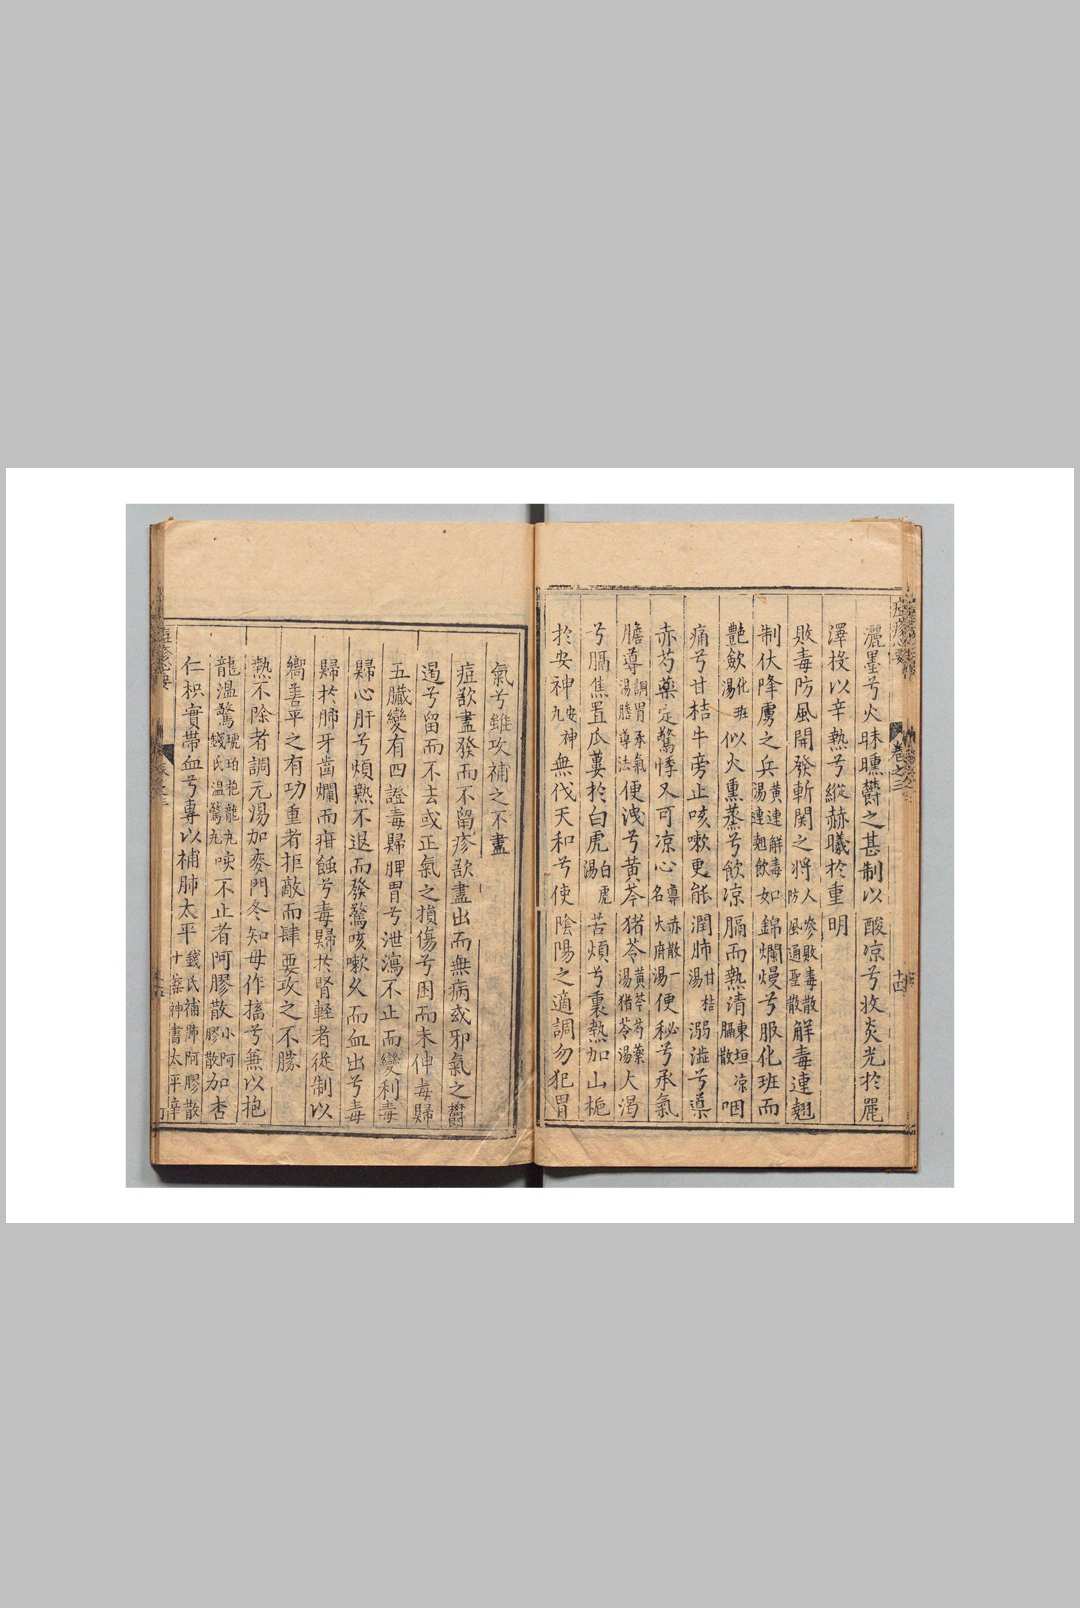 灑墨兮火昧曛欝之甚制以酸凉兮收炎光於麗
澤投以辛熱兮縱赫曦於重明
敗毒防風開發斬関之將人參敗毒散防風通聖散解毒連翹
制伏降虜之兵黄連解毒湯連翹飲如錦爛熳兮服化班而
艶歛化班湯似火熏蒸兮飲凉膈而熱清東垣凉膈散咽
痛兮甘桔牛旁止咳嗽更能潤肺甘桔湯溺澁兮導
赤芍藥定驚悸又可凉心導赤散一名火府湯便秘兮承氣
膽導調胃承氣湯膽導法便洩兮黄芩猪苓黄芩芍藥湯猪苓湯大渴
兮膈焦罝瓜蔞於白虎白虎湯苦煩兮裏熱加山梔
於安神安神丸無伐天和兮使陰陽之適調勿犯胃
氣兮雖攻補之不盡
痘欲盡發而不留疹欲盡出而無病或邪氣之欝
遏兮留而不去或正氣之損傷兮困而未伸毒歸
五臟變有四證毒歸脾胃兮泄瀉不止而變利毒
歸心肝兮煩熱不退而發驚咳嗽久而血出兮毒
歸於肺牙齒爛而疳蝕兮毒歸於腎輕者從制以
嚮善平之有功重者拒敵而肆要攻之不勝
熱不除者調元湯加麥門冬知母作搐兮兼以抱
龍温驚琥珀抱龍丸錢氏温驚丸咳不止者阿膠散小阿膠散加杏
仁枳實帶血兮專以補肺太平錢氏補肺阿膠散十藥神書太平
卷之三
十四